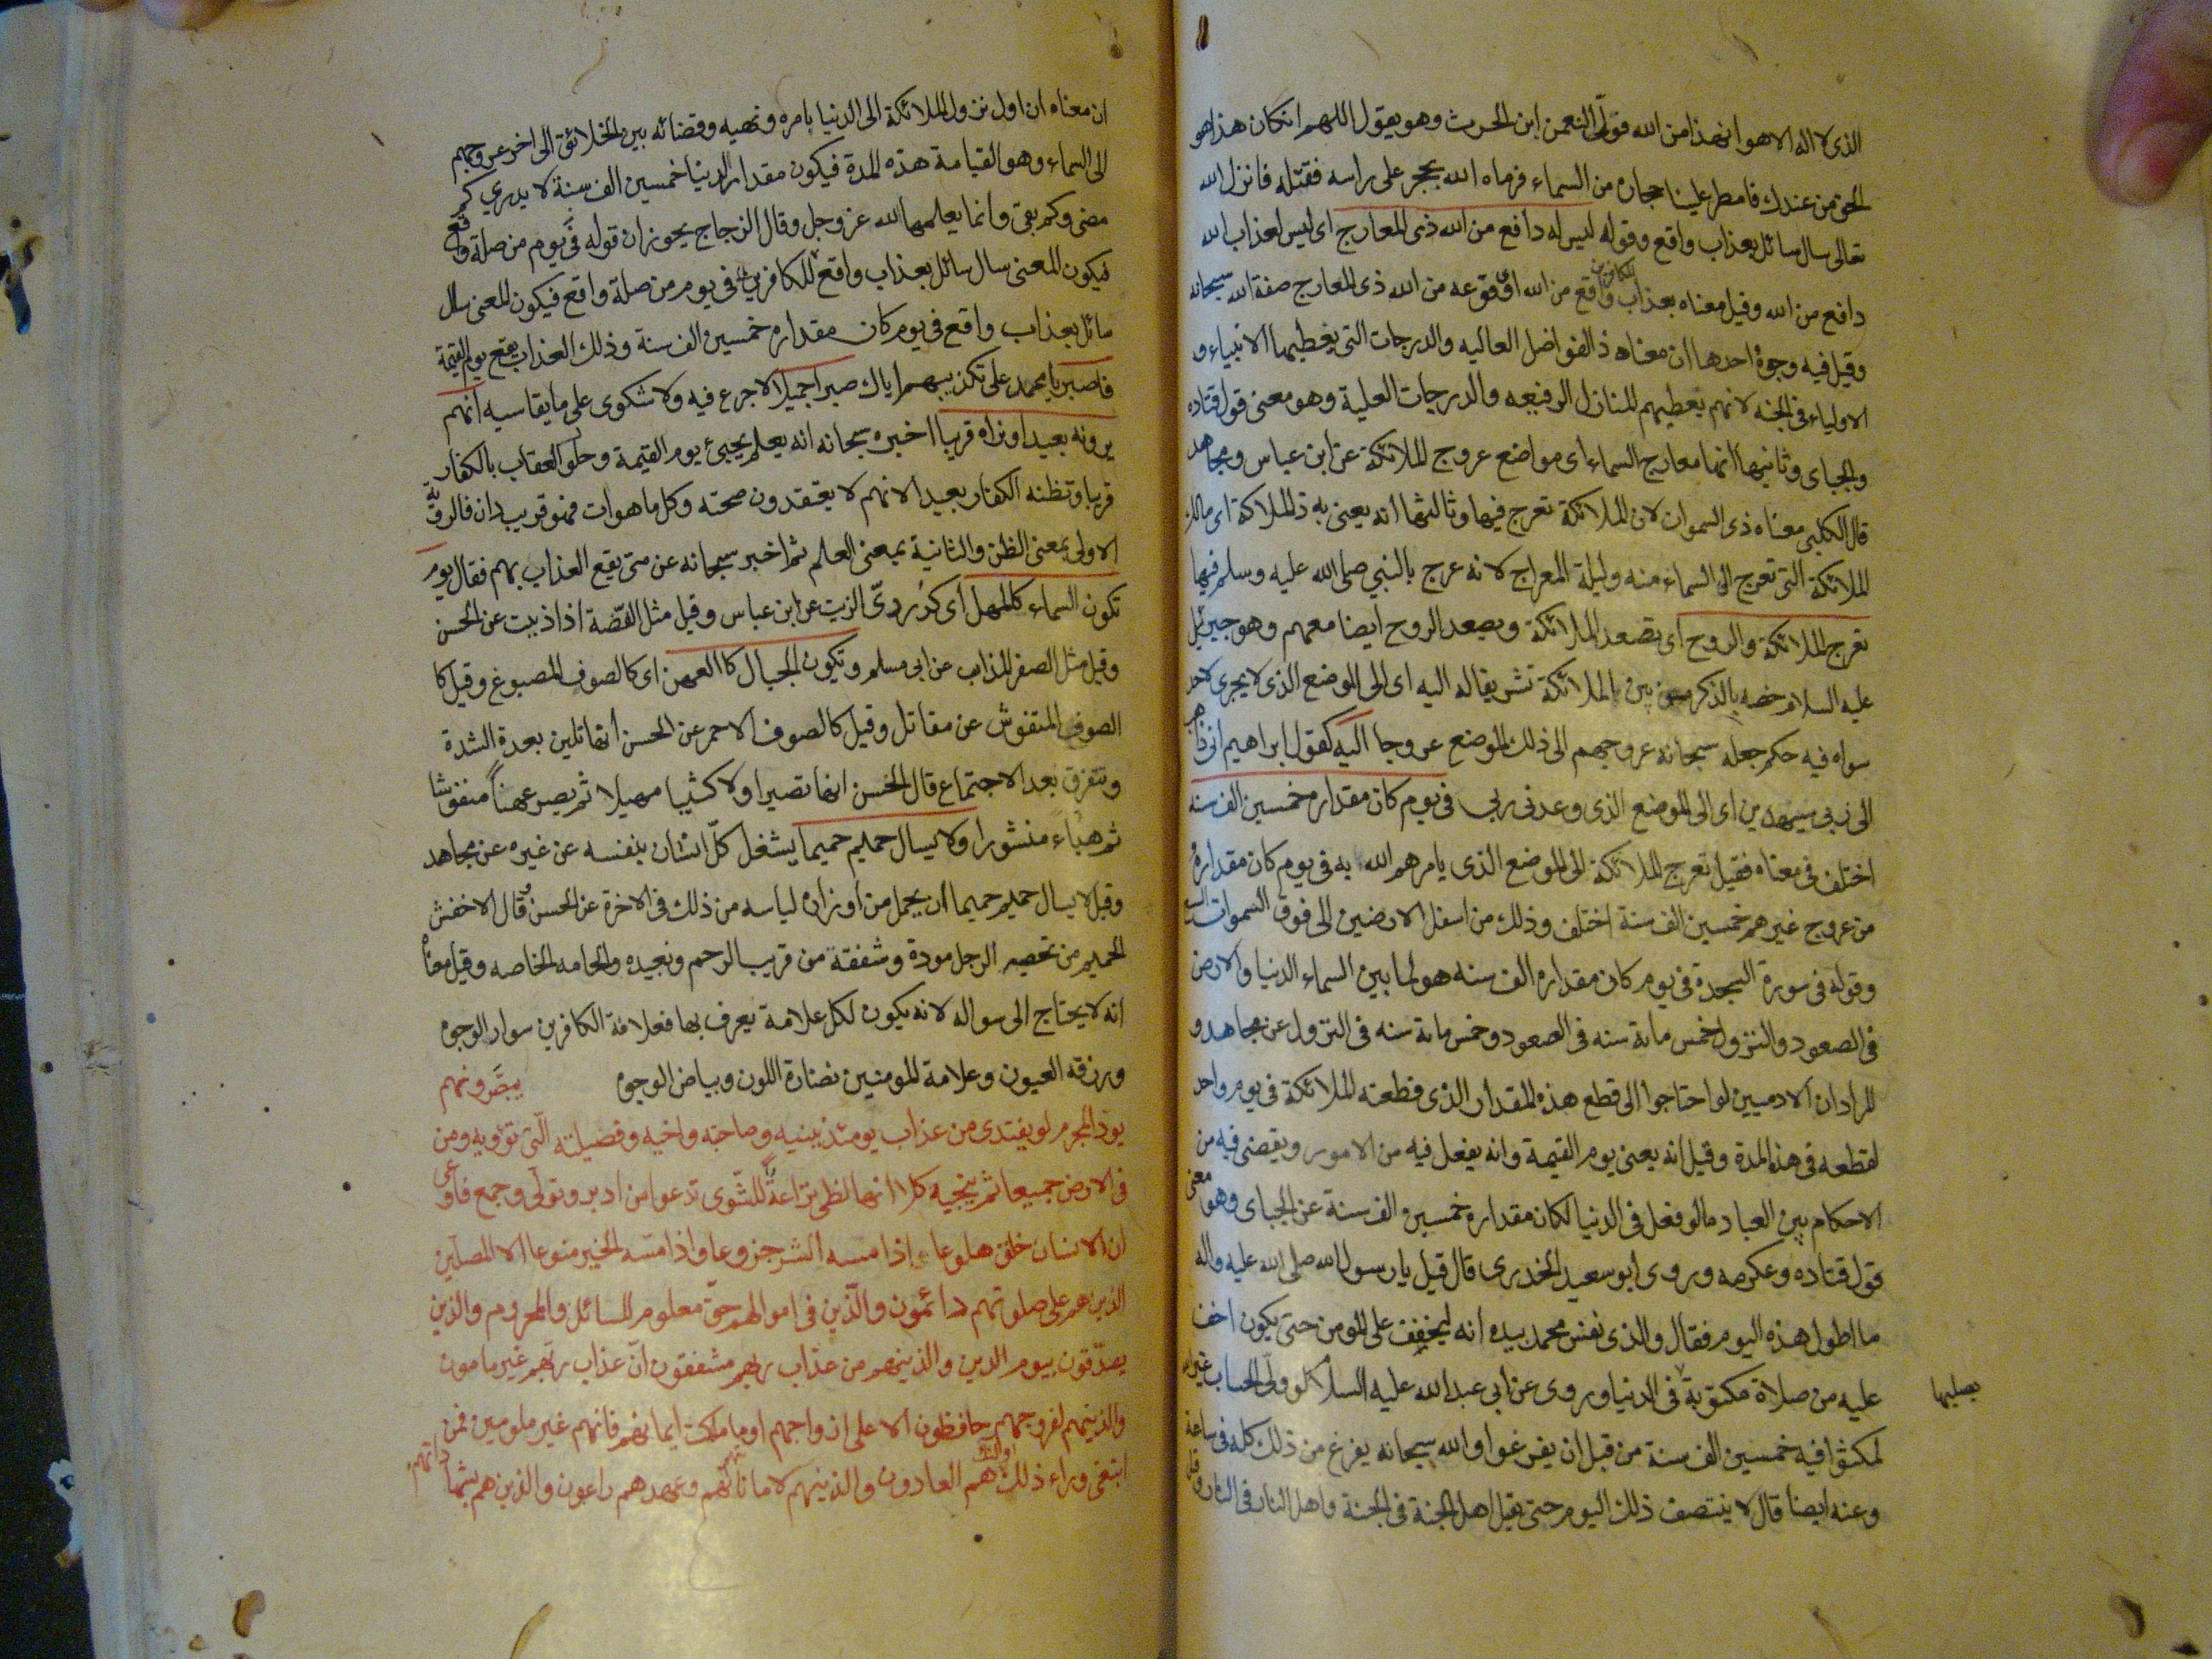 الذى لا اله الا هو ان هذا من الله فولّى النعمن ابن الحرث وهو يقول اللهم ان كان هذا هو
الحق من عندك فامطر علينا حجارة من السماء فرماه الله بحجر على راسه فقتله فانزل الله
تعالى سال سائل بعذاب واقع وقوله ليس له دافع من الله ذى المعارج اى ليس لعذاب الله
دافع من الله وقيل معناه بعذاب للكافرين واقع من الله اى وقوعه من الله ذى المعارج صفة الله سبحانه
وقيل فيه وجوه احدها ان معناه ذ الفواضل العاليه والدرجات التى يعطيها الانبياء و
الاولياء فى الجنه لانهم يعطيهم المنازل الرفيعه والدرجات العلية وهو معنى قول قتاده
والجباى وثانيها انها معارج السماء اى مواضع عروج الملائكة عن ابن عباس ومجاهد
قال الكلبى معناه ذى السموات لان الملائكة تعرج فيها وثالثها انه يعنى به ذ الملاكة اى مالك
الملائكة التى تعرج الى السماء منه وليلة المعراج لانه عرج بالنبي صلى الله عليه وسلم فيها
تعرج الملائكة والروح اى تصعد الملائكة ويصعد الروح ايضا معهم وهو جبرئيل
عليه السلام خصه بالذكر من بين الملائكة تشريفا له اليه اى الى الموضع الذى لا يجرى لاحد
سواه فيه حكم جعله سبحانه عروجهم الى ذلك الموضع عروجا اليه كقول ابراهيم انى ذاهب
الى ربى سيهدين اى الى الموضع الذى وعدنى ربى فى يوم كان مقداره خمسين الف سنه
اختلف فى معناه فقيل تعرج الملائكة الى الموضع الذى يامرهم الله به فى يوم كان مقداره
من عروج غيرهم خمسين الف سنة اختلف وذلك من اسفل الارضين الى فوق السموات السبع
وقوله فى سورة السجدة فى يوم كان مقداره الف سنه هو لما بين السماء الدنيا والارض
فى الصعود والنزول خمس مائة سنه فى الصعود وخمس مائة سنه فى النزول عن مجاهد و
المراد ان الادميين لو احتاجوا الى قطع هذه المقدار الذى قطعته الملائكة فى يوم واحد
لقطعه فى هذه المدة وقيل انه يعنى يوم القيمة وانه يفعل فيه من الامور ويقضى فيه من
الاحكام بين العباد ما لو فعل فى الدنيا لكان مقداره خمسين الف سنة عن الجباى وهو معنى
قول قتاده وعكرمه وروى ابو سعيد الخدرى قال قيل يا رسول الله صلى الله عليه واله
ما اطول هذه اليوم فقال والذى نفس محمد بيده انه ليخفف على المومن حتى يكون اخف
عليه من صلاة مكتوبة فى الدنيا وروى عن ابى عبد الله عليه السلام لو ولى الحساب غير الله
يصليها
لمكثوا فيه خمسين الف سنة من قبل ان يفرغوا والله سبحانه يفرغ من ذلك كله فى ساعة
وعنه ايضا قال لا ينتصف ذلك اليوم حتى يقيل اهل الجنة فى الجنة واهل النار فى النار وقيل
ان معناه ان اول نزول الملائكة الى الدنيا بامره ونهيه وقضائه بين الخلائق الى اخر عروجهم
الى السماء وهو القيامة هذه المدة فيكون مقدار الدنيا خمسين الف سنة لا يدرى كم
مضى وكم بقى وانما يعلمها الله عز وجل وقال الزجاج يجوز ان قوله فى يوم من صلة واقع
فيكون المعنى سال سائل بعذاب واقع للكافرين فى يوم من صلة واقع فيكون المعنى سال
سائل بعذاب واقع فى يوم كان مقداره خمسين الف سنة وذلك العذاب يقع يوم القيمة
فاصبر يا محمد على تكذيبهم اياك صبرا جميلا لا جزع فيه ولا شكوى على ما يقاسيه انهم
يرونه بعيدا ونراه قريبا اخبره سبحانه انه يعلم يجيئ يوم القيمة وحلو العقاب بالكفار
قريبا وتظنه الكفار بعيدا لانهم لا يعتقدون صحته وكل ما هو ات فهو قريب دان فالروية
الاولى بمعنى الظن والثانية بمعنى العلم ثم اخبر سبحانه عن متى يقع العذاب بهم فقال يوم
تكون السماء كالمهل اى كدردىّ الزيت عن ابن عباس وقيل مثل الفضة اذا ذيبت عن الحسن
وقيل مثل الصفر المذاب عن ابى مسلم وتكون الجبال كا العهن اى كالصوف المصبوغ وقيل كا
الصوف المنفوش عن مقاتل وقيل كالصوف الاحمر عن الحسن انها تلين بعدة الشدة
وتتفرق بعد الاجتماع قال الحسن انها تصير اولا كثيبا مهيلا ثم يصير عهنا منفوشا
ثم هباء منثورا ولا يسال حميم حميما يشغل كل انسان بنفسه عن غيره عن مجاهد
وقيل لا يسال حميم حميما ان يحمل من اوزاره لياسه من ذلك فى الاخرة عن الحسن وقال الاخفش
الحميم من تخصه الرجل مودة وشفقة من قريب الرحم وبعيده والحامه الخاصه وقيل معناه
انه لا يحتاج الى سواله لانه يكون لكل علامة يعرف بها فعلامة الكافرين سواد الوجوه
وزرقة العيون وعلامة المومنين نضارة اللون وبياض الوجوه يبصّرونهم
يودّ المجرم لو يفتدى من عذاب يومئذ ببنيه وصاحبته واخيه وفصيلته الّتى تؤويه ومن
فى الارض جميعا ثم ينجيه كلا انها لظى نزاعةً للشّوى تدعوا من ادبر وتولّى وجمع فاوعى
ان الانسان خلق هلوعا اذا مسه الشر جزوعا واذا مسه الخير منوعا الا المصلّين
الذين هم على صلوتهم دائمون والّذين فى اموالهم حقّ معلوم للسائل والمحروم والذين
يصدّقون بيوم الدين والذينهم من عذاب ربهم مشفقون انّ عذاب ربّهم غير مامون
والذينهم لفروجهم حافظون الا على ازواجهم او ما ملكت ايمانهم فانهم غير ملومين فمن
ابتغى وراء ذلك فاولئك هم العادون والذينهم لاماناتهم وعهدهم راعون والذين هم بشهاداتهم